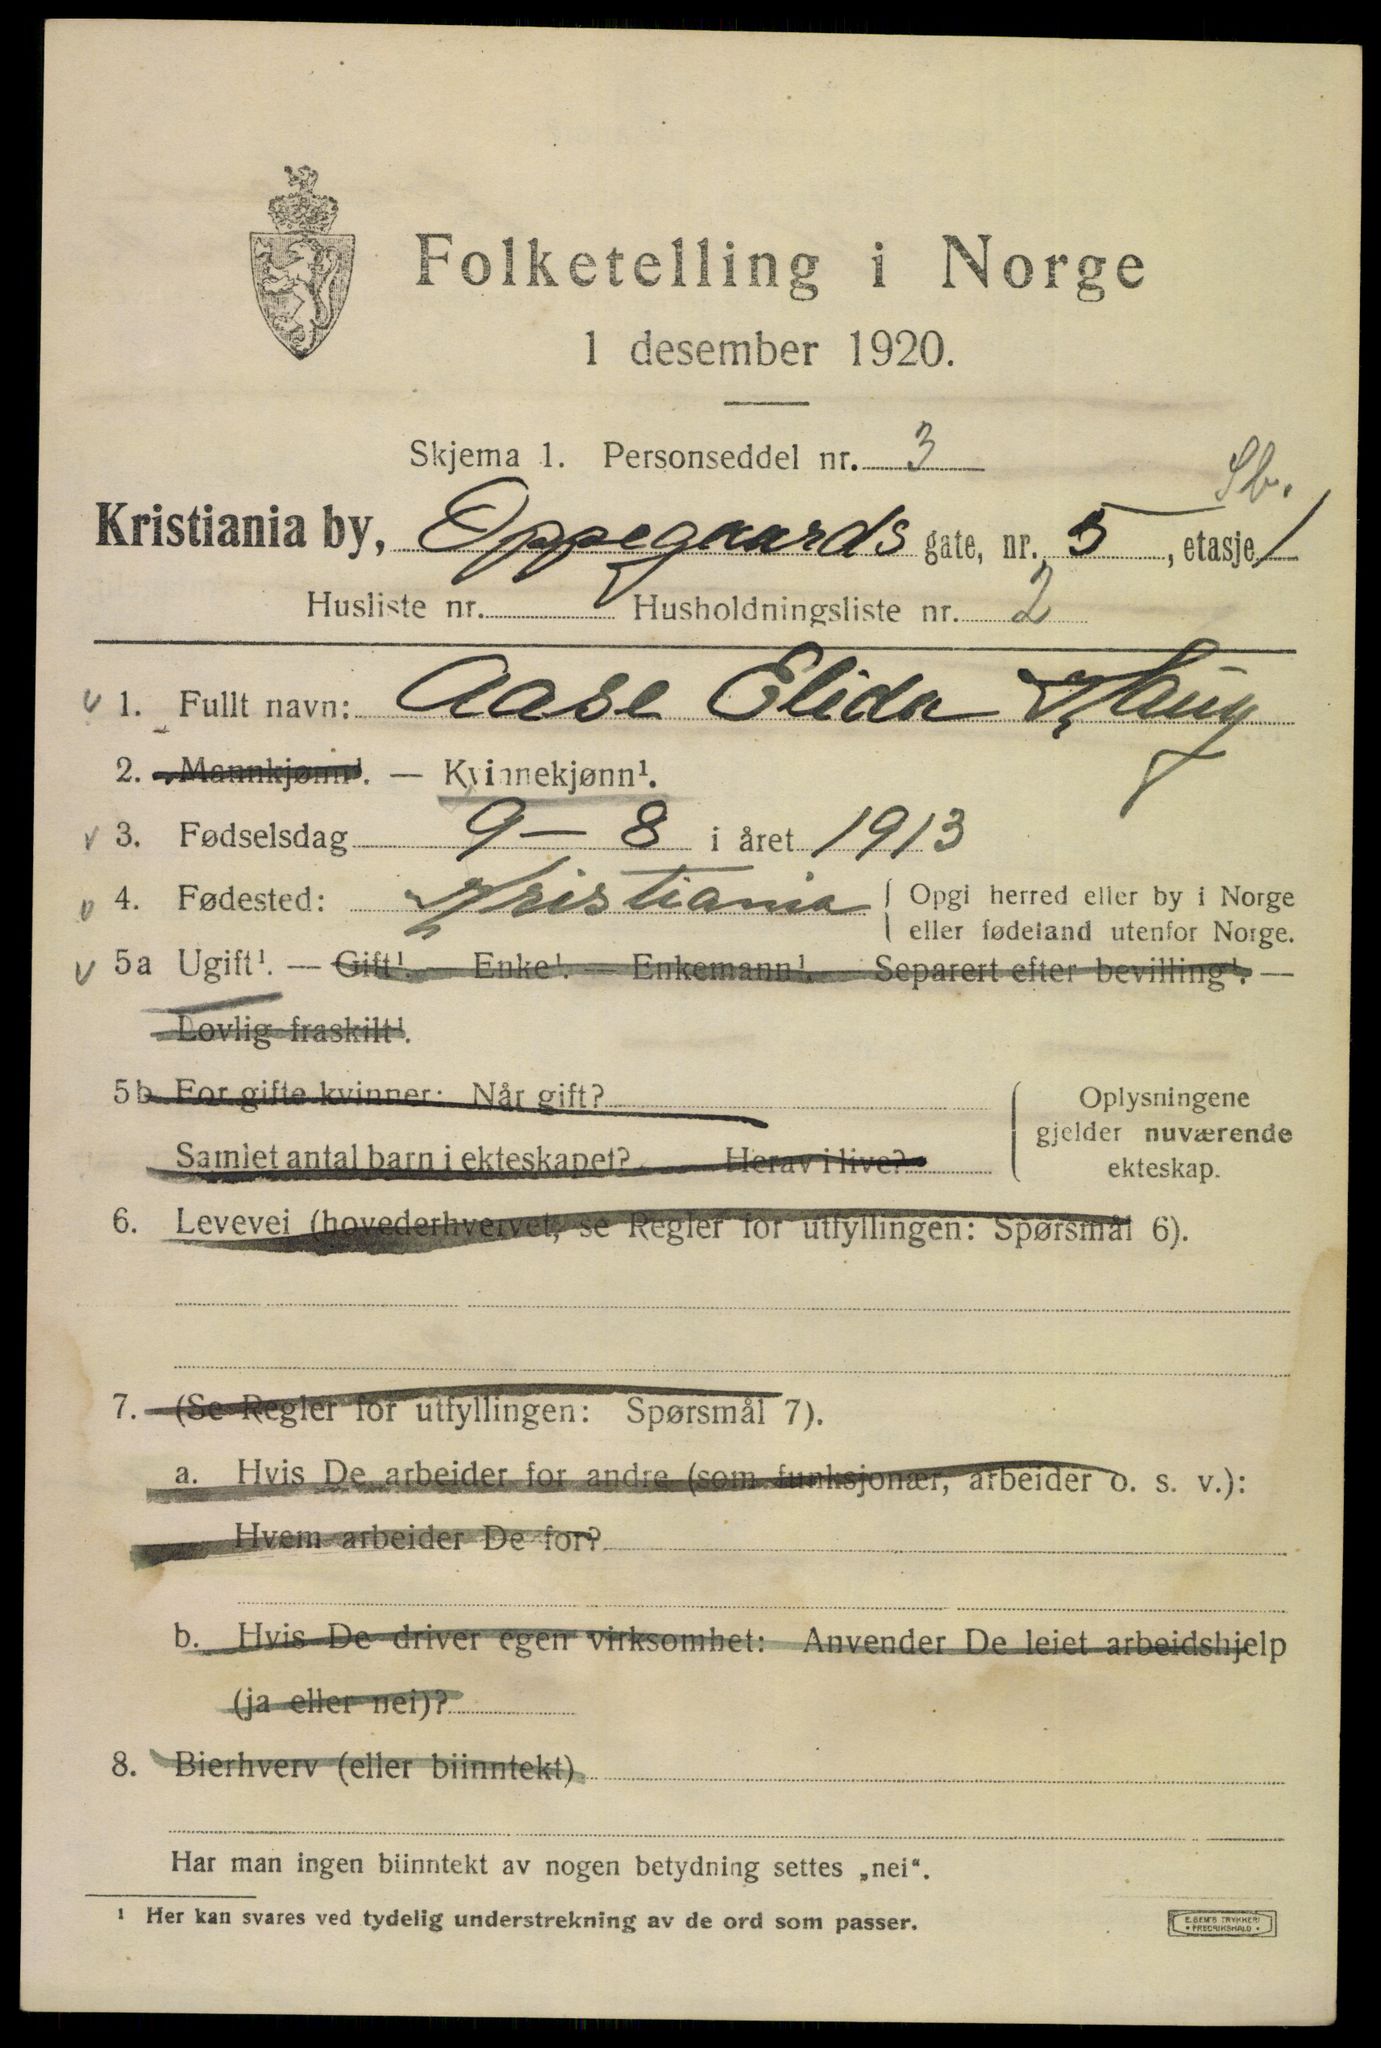 Folketelling i Norge
1 desember 1920.
Skjema 1. Personseddel nr. 3
Sb.
Kristiania by, Oppegaards gate, nr. 5, etasje 1
Husliste nr. Husholdningsliste nr. 2
1. Fullt navn: Aase Elida Haug
2. Mannkjønn¹. — Kvinnekjønn¹.
3. Fødselsdag 9 — 8 i året 1913
4. Fødested: Kristiania { Opgi herred eller by i Norge
eller fødeland utenfor Norge.
5a Ugift¹. — Gift¹. — Enke¹. — Enkemann¹. — Separert efter bevilling¹. —
Lovlig fraskilt¹.
5b For gifte kvinner: Når gift?
Samlet antal barn i ekteskapet? Herav i live?
Oplysningene
gjelder nuværende
ekteskap.
6. Levevei (hovederhvervet, se Regler for utfyllingen: Spørsmål 6).
7. (Se Regler for utfyllingen: Spørsmål 7).
a. Hvis De arbeider for andre (som funksjonær, arbeider o. s. v.):
Hvem arbeider De for?
b. Hvis De driver egen virksomhet: Anvender De leiet arbeidshjelp
(ja eller nei)?
8. Bierhverv (eller biinntekt)
Har man ingen biinntekt av nogen betydning settes „nei“.
¹ Her kan svares ved tydelig understrekning av de ord som passer.
E. SEM'S TRYKKERI
• FREDRIKSHALD •